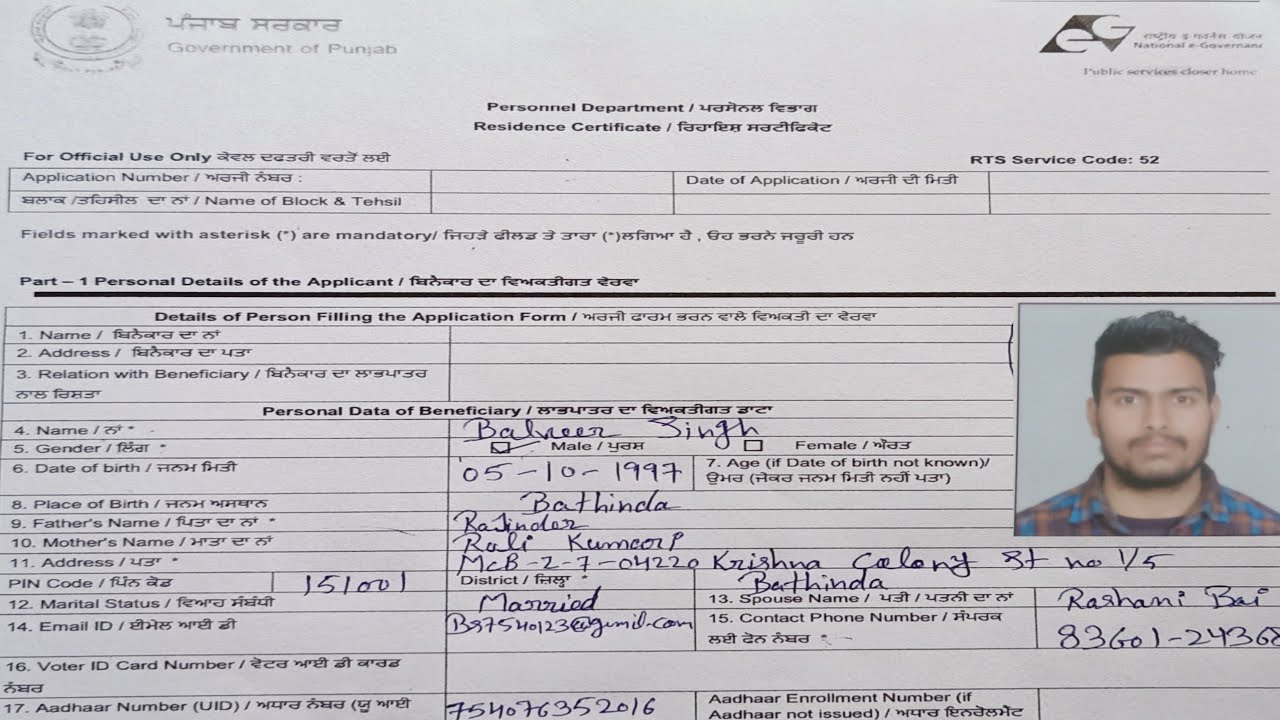 ਪੰਜਾਬ ਸਰਕਾਰ
Government of Punjab
राष्ट्रीय इ गवनेंस योजन
National e-Governanc
Public services closer home
Personnel Department / ਪਰਸੋਨਲ ਵਿਭਾਗ
Residence Certificate / ਰਿਹਾਇਸ਼ ਸਰਟੀਫਿਕੇਟ
For Official Use Only ਕੇਵਲ ਦਫਤਰੀ ਵਰਤੋਂ ਲਈ
RTS Service Code: 52
Application Number / ਅਰਜੀ ਨੰਬਰ :
Date of Application / ਅਰਜੀ ਦੀ ਮਿਤੀ
ਬਲਾਕ /ਤਹਿਸੀਲ ਦਾ ਨਾਂ / Name of Block & Tehsil
Fields marked with asterisk (*) are mandatory/ ਜਿਹੜੇ ਫੀਲਡ ਤੇ ਤਾਰਾ (*)ਲਗਿਆ ਹੈ , ਓਹ ਭਰਨੇ ਜਰੂਰੀ ਹਨ
Part – 1 Personal Details of the Applicant / ਬਿਨੈਕਾਰ ਦਾ ਵਿਅਕਤੀਗਤ ਵੇਰਵਾ
Details of Person Filling the Application Form / ਅਰਜੀ ਫਾਰਮ ਭਰਨ ਵਾਲੇ ਵਿਅਕਤੀ ਦਾ ਵੇਰਵਾ
1. Name / ਬਿਨੈਕਾਰ ਦਾ ਨਾਂ
2. Address / ਬਿਨੈਕਾਰ ਦਾ ਪਤਾ
3. Relation with Beneficiary / ਬਿਨੈਕਾਰ ਦਾ ਲਾਭਪਾਤਰ
ਨਾਲ ਰਿਸ਼ਤਾ
Personal Data of Beneficiary / ਲਾਭਪਾਤਰ ਦਾ ਵਿਅਕਤੀਗਤ ਡਾਟਾ
4. Name / ਨਾਂ * Balveer Singh
5. Gender / ਲਿੰਗ * Male / ਪੁਰਸ਼ Female / ਔਰਤ
6. Date of birth / ਜਨਮ ਮਿਤੀ 05-10-1997 7. Age (if Date of birth not known)/
ਉਮਰ (ਜੇਕਰ ਜਨਮ ਮਿਤੀ ਨਹੀਂ ਪਤਾ)
8. Place of Birth / ਜਨਮ ਅਸਥਾਨ Bathinda
9. Father's Name / ਪਿਤਾ ਦਾ ਨਾਂ * Rajinder
10. Mother's Name / ਮਾਤਾ ਦਾ ਨਾਂ Rali
11. Address / ਪਤਾ * McB-2-7-04220 Krishna Colony St no 1/5
PIN Code / ਪਿੰਨ ਕੋਡ 151001 District / ਜ਼ਿਲ੍ਹਾ * Bathinda
12. Marital Status / ਵਿਆਹ ਸੰਬੰਧੀ Married 13. Spouse Name / ਪਤੀ / ਪਤਨੀ ਦਾ ਨਾਂ Rashani Bai
14. Email ID / ਈਮੇਲ ਆਈ ਡੀ Bs7540123@gmil.com 15. Contact Phone Number / ਸੰਪਰਕ
ਲਈ ਫੋਨ ਨੰਬਰ *- 83601-24368
16. Voter ID Card Number / ਵੋਟਰ ਆਈ ਡੀ ਕਾਰਡ
ਨੰਬਰ
17. Aadhaar Number (UID) / ਅਧਾਰ ਨੰਬਰ (ਯੂ ਆਈ 754076352016 Aadhaar Enrollment Number (if
Aadhaar not issued) / ਅਧਾਰ ਇਨਰੋਲਮੈਂਟ